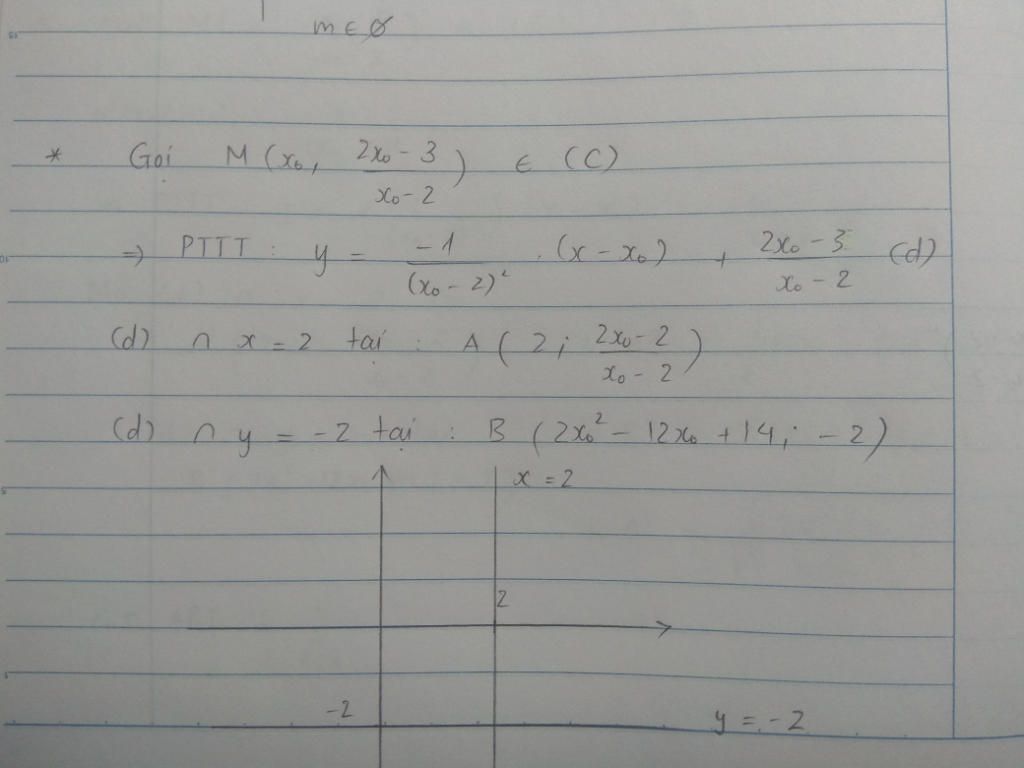 m ∈ ∅
* Gọi M(x₀, (2x₀ - 3)/(x₀ - 2)) ∈ (C)
⇒ PTTT : y = -1/(x₀ - 2)² . (x - x₀) + (2x₀ - 3)/(x₀ - 2) (d)
(d) ∩ x = 2 tại : A(2; (2x₀ - 2)/(x₀ - 2))
(d) ∩ y = -2 tại : B(2x₀² - 12x₀ + 14; -2)
x = 2
2
-2
y = -2